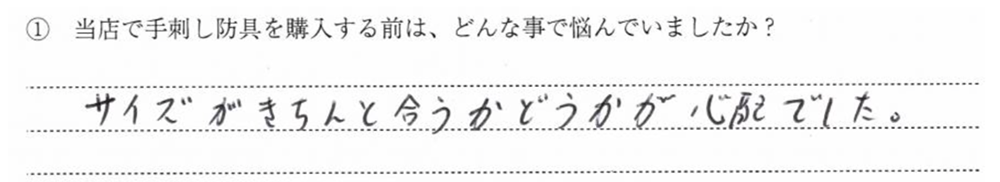 ① 当店で手刺し防具を購入する前は、どんな事で悩んでいましたか？
サイズがきちんと合うかどうかが心配でした。